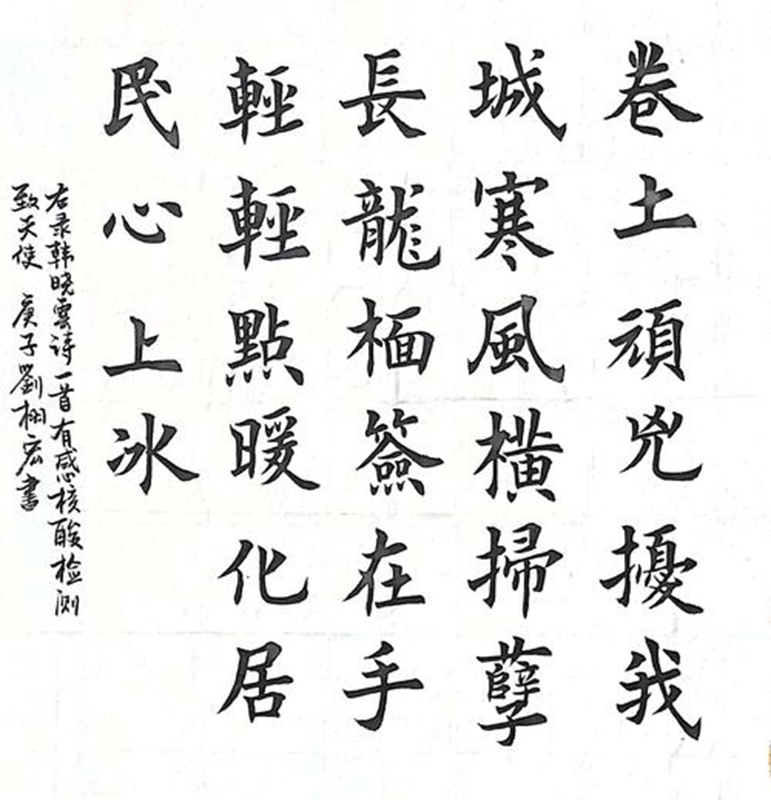 卷土頑兇擾我
城寒風橫掃孽
長龍棉籤在手
輕輕點暖化居
民心上冰
右录韩晓雲诗一首有感核酸检测
致天使 庚子劉栩宏書